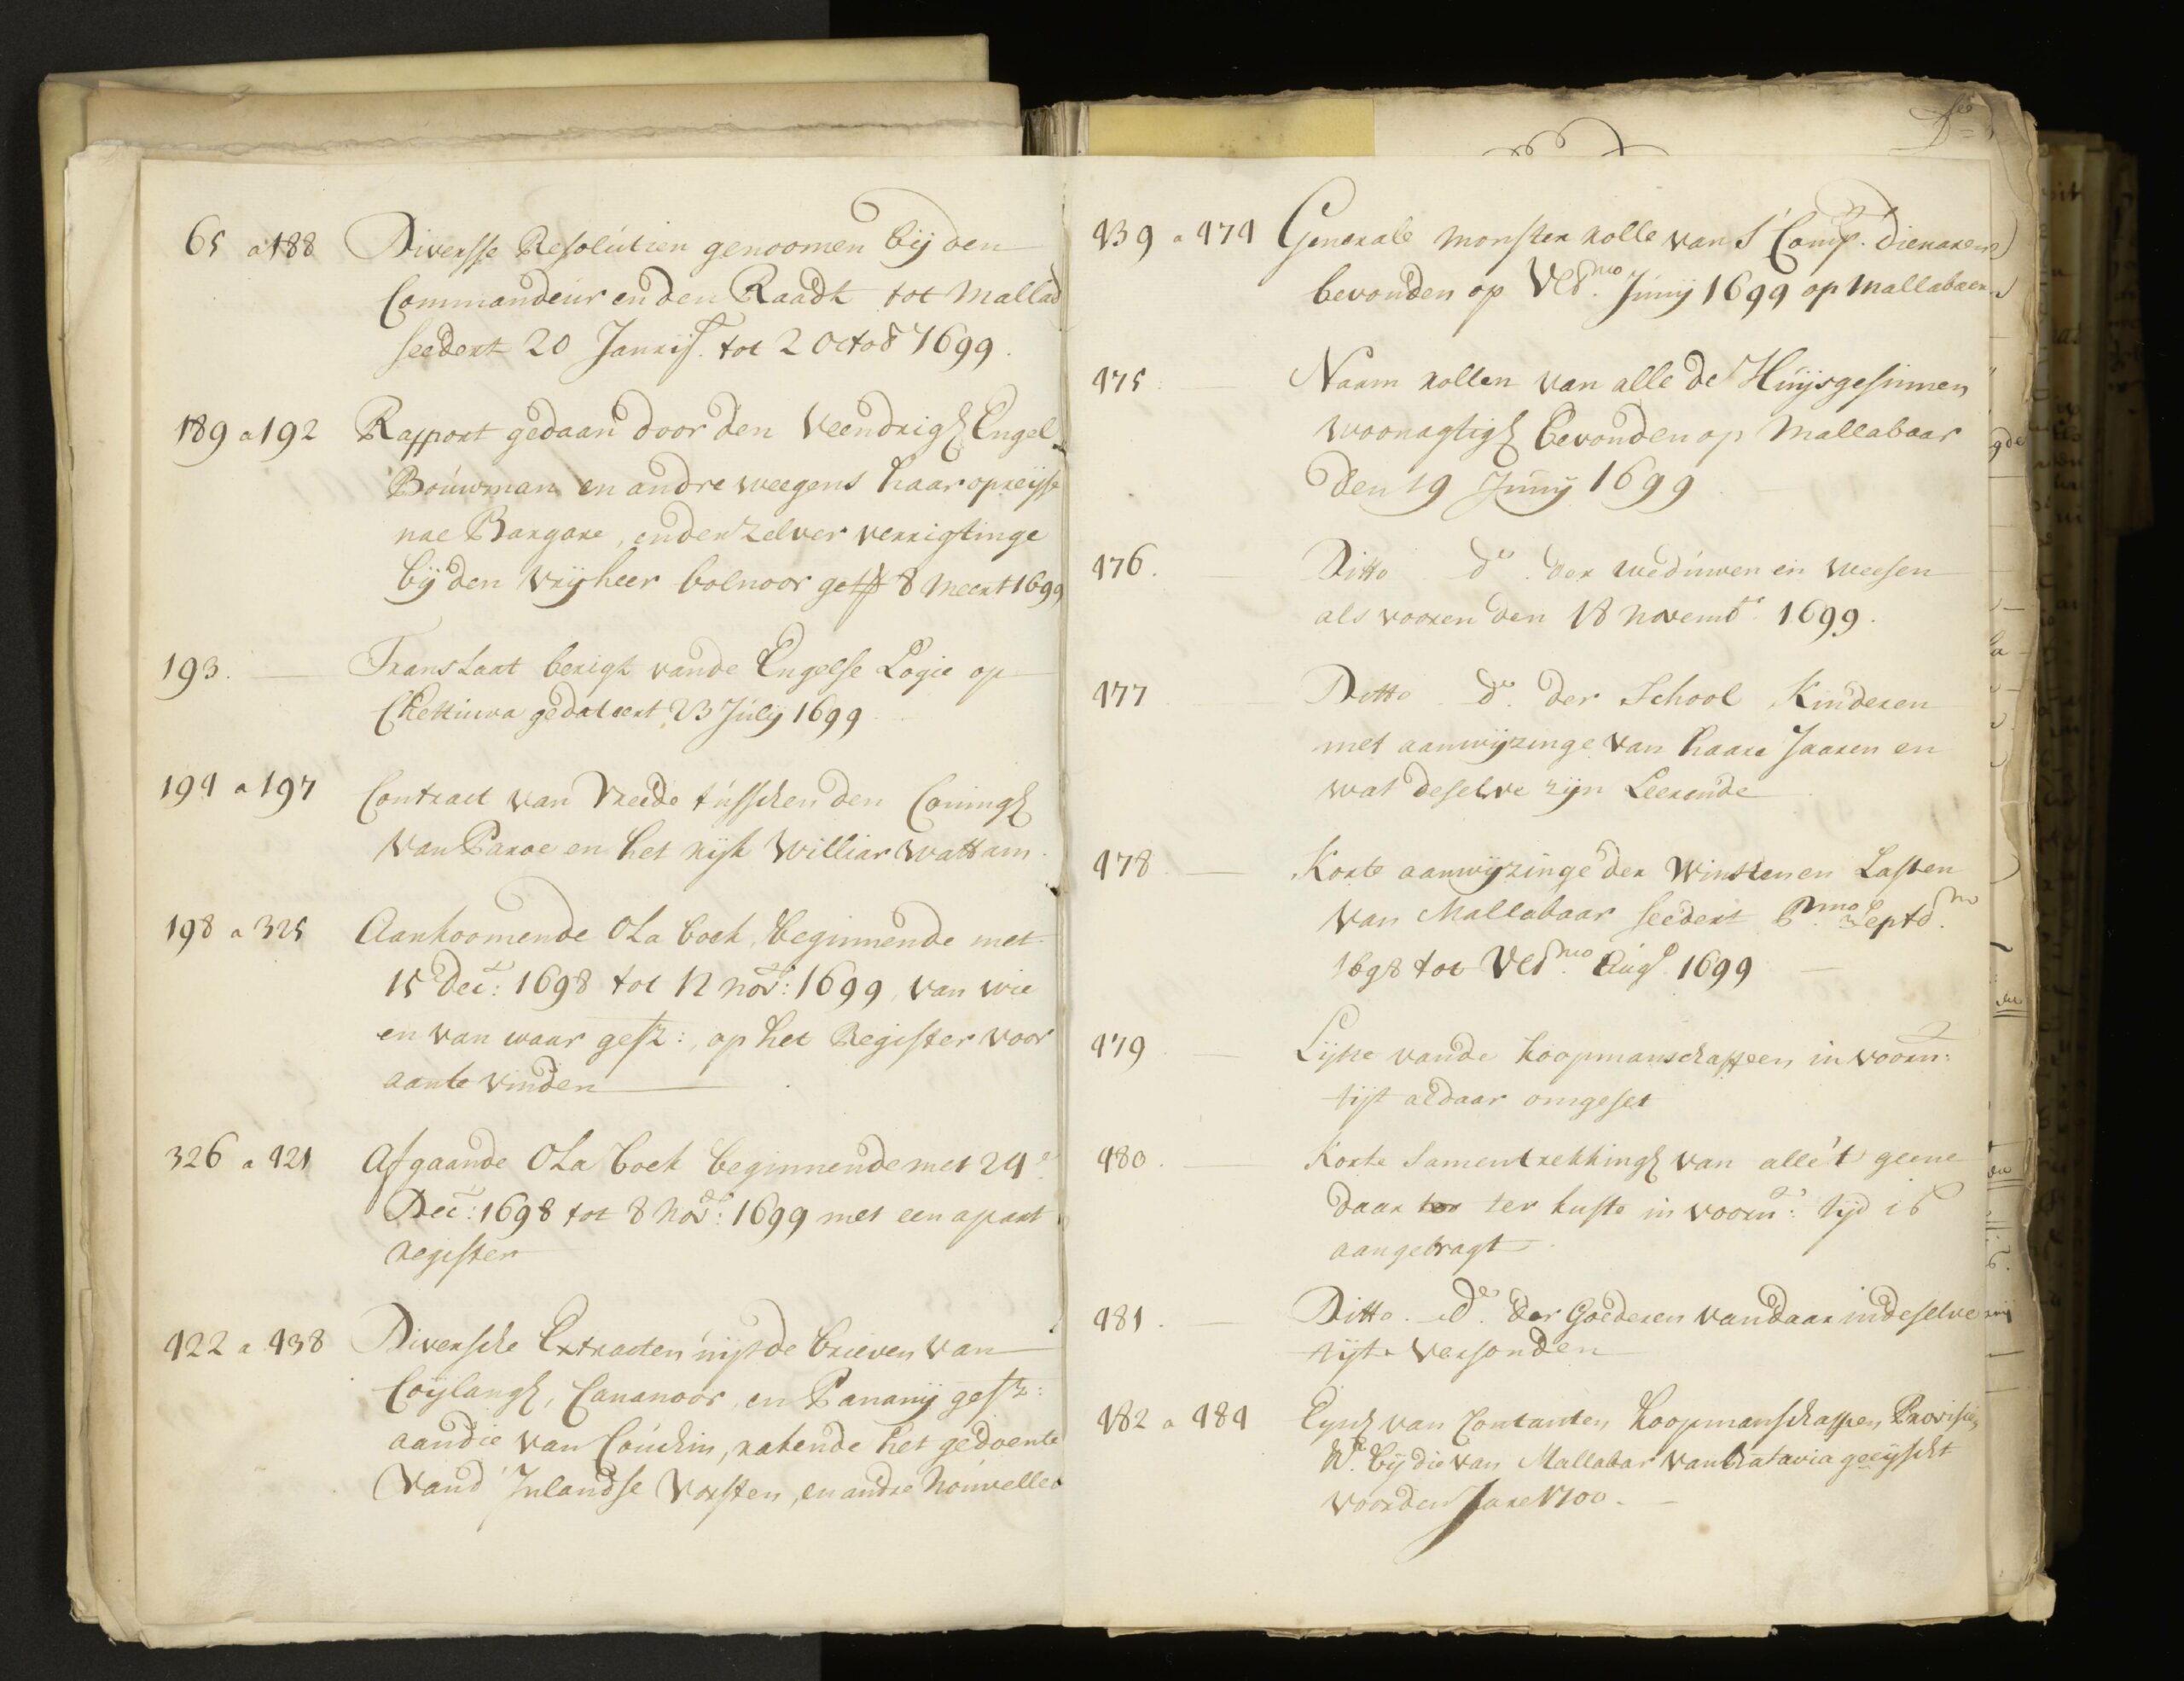 65 a 188 Diversse Resolutien genoomen bij den
Commandeur en den Raadt tot Mallab
seedert 20 Janrij. tot 2 Octob 1699.
189 a 192 Rapport gedaan door den veendrigh Engel
Bouwman en andre weegens haar opreijse
nae Bargare, en derzelver verrigtinge
bij den vrijheer bolnoor get 8 meert 1699
193. Translaat berigt vande Engelse Logie op
Chettuwa gedateert 23 Julij 1699
194 a 197 Contract van Vreede tusschen den Coningh
van Paroe en het rijk Williar Wattam.
198 a 325 Aankoomende Ola boek, beginnende met
15 Dec: 1698 tot 12 nov: 1699, van wie
en van waar gesz:, op het Register voor
aante vinden
326 a 421 Afgaande Ola boek beginnende met 24e
Dec: 1698 tot 8 Nov: 1699 met een apart
register
422 a 438 Diversche Extracten uijt de brieven van
Coijlangh, Cananoor, en Pananij gesz:
aan die van Couchin, rakende het gedoente
vand' Inlandse vorsten, en andre nouvelles
439 a 474 Generale monster rolle van s' Comp. dienaren
bevonden op Ulto. Junij 1699 op Mallabaar
475 Naam rollen van alle de Huijsgesinnen
woonagtigh bevonden op Mallabaar
den 19 Junij 1699
476. Ditto do. der weduwen en weesen
als vooren den 18 novemb. 1699.
477 Ditto do. der School Kinderen
met aanwijzinge van haare Jaaren en
wat deselve zijn Leerende
478 Korte aanwijzinge der Winsten en Lasten
van Mallabaar seedert Pmo. 7eptb.
1698 tot Ultmo. Aug. 1699
479 Lijste vande koopmanschappen, in voorn:
tijt aldaar omgeset
480. Korte samentrekkingh van alle 't geene
daar ter kuste in voorn: tijd is
aangebragt
481. Ditto. do. der Goederen vandaar in deselve
tijt versonden
482 a 484 Eijsch van Contanten, koopmanschappen, Provisien
&a. bij die van Mallabar van Batavia geeijscht
voor den Jare 1700.